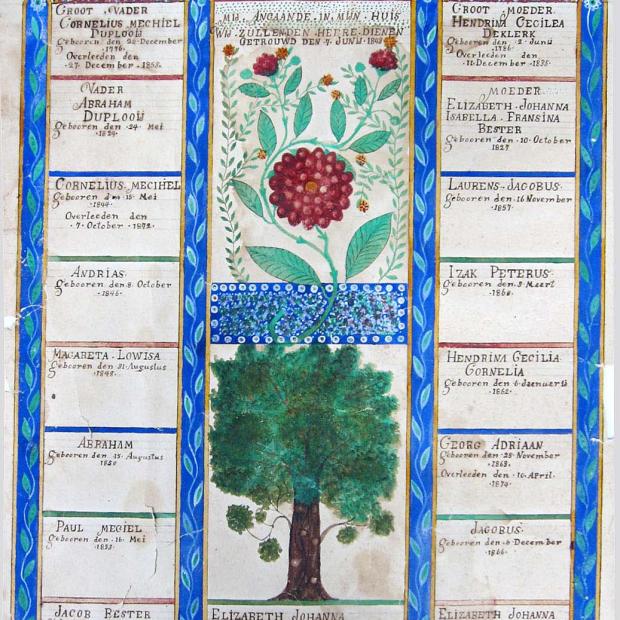 Groot Vader
Cornelius Mechiel
Duplooij
Gebooren den 22 December
1796
Overleeden den
27 December 1853
Vader
Abraham
Duplooij
Gebooren den 24 Mei
Cornelius Mecihel
Gebooren den 15 Mei
1844
Overleeden den
7 October 1872
Andrias
Gebooren den 8 October
1846
Magareta Lowisa
Gebooren den 31 Augustus
1848
Abraham
Gebooren den 15 Augustus
1850
Paul Megiel
Gebooren den 16 Mei
Jacob Bester
Mij Angaande in Mijn Huis
Wij Zullenden Heere Dienen
Getrouwd den 7 Junij
Elizabeth Johanna
Groot Moeder
Hendrina Cecilea
Deklerk
Gebooren den 2 Junij
1786
Overleeden den
11 December 1835
Moeder
Elizabeth Johanna
Isabella Fransina
Bester
Gebooren den 10 October
1827
Laurens Jacobus
Gebooren den 16 November
1857
Izak Peterus
Gebooren den 3 Maert
1860
Hendrina Cecilia
Cornelia
Gebooren den 6 Jaenuerij
1862
Georg Adriaan
Gebooren den 28 November
1863
Overleeden den 10 April
1874
Jacobus
Gebooren den 6 December
1866
Elizabeth Johanna